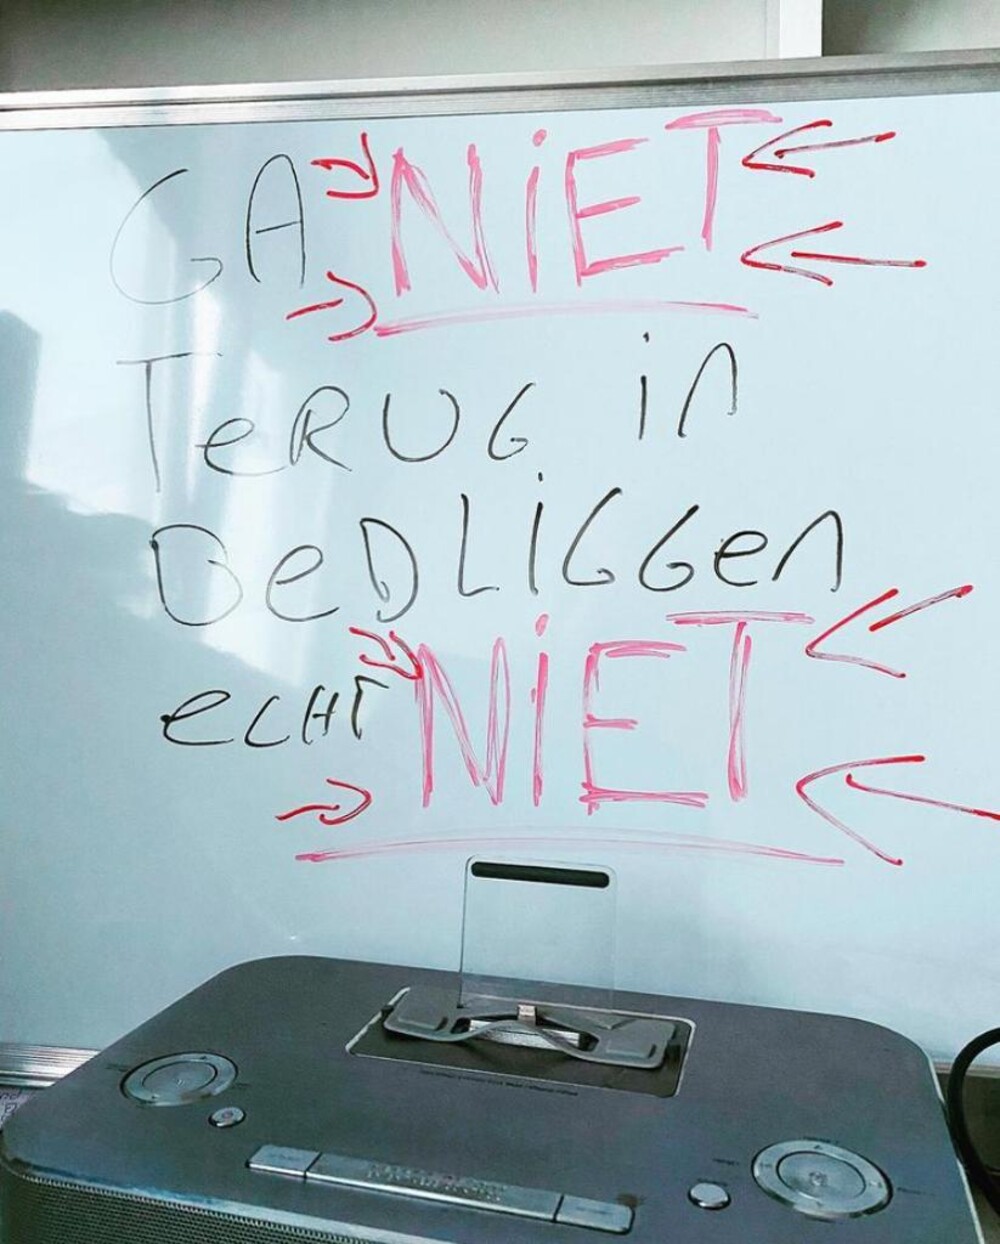 GA NiET
TeRUG in
BeDLiGGen
echt NiET